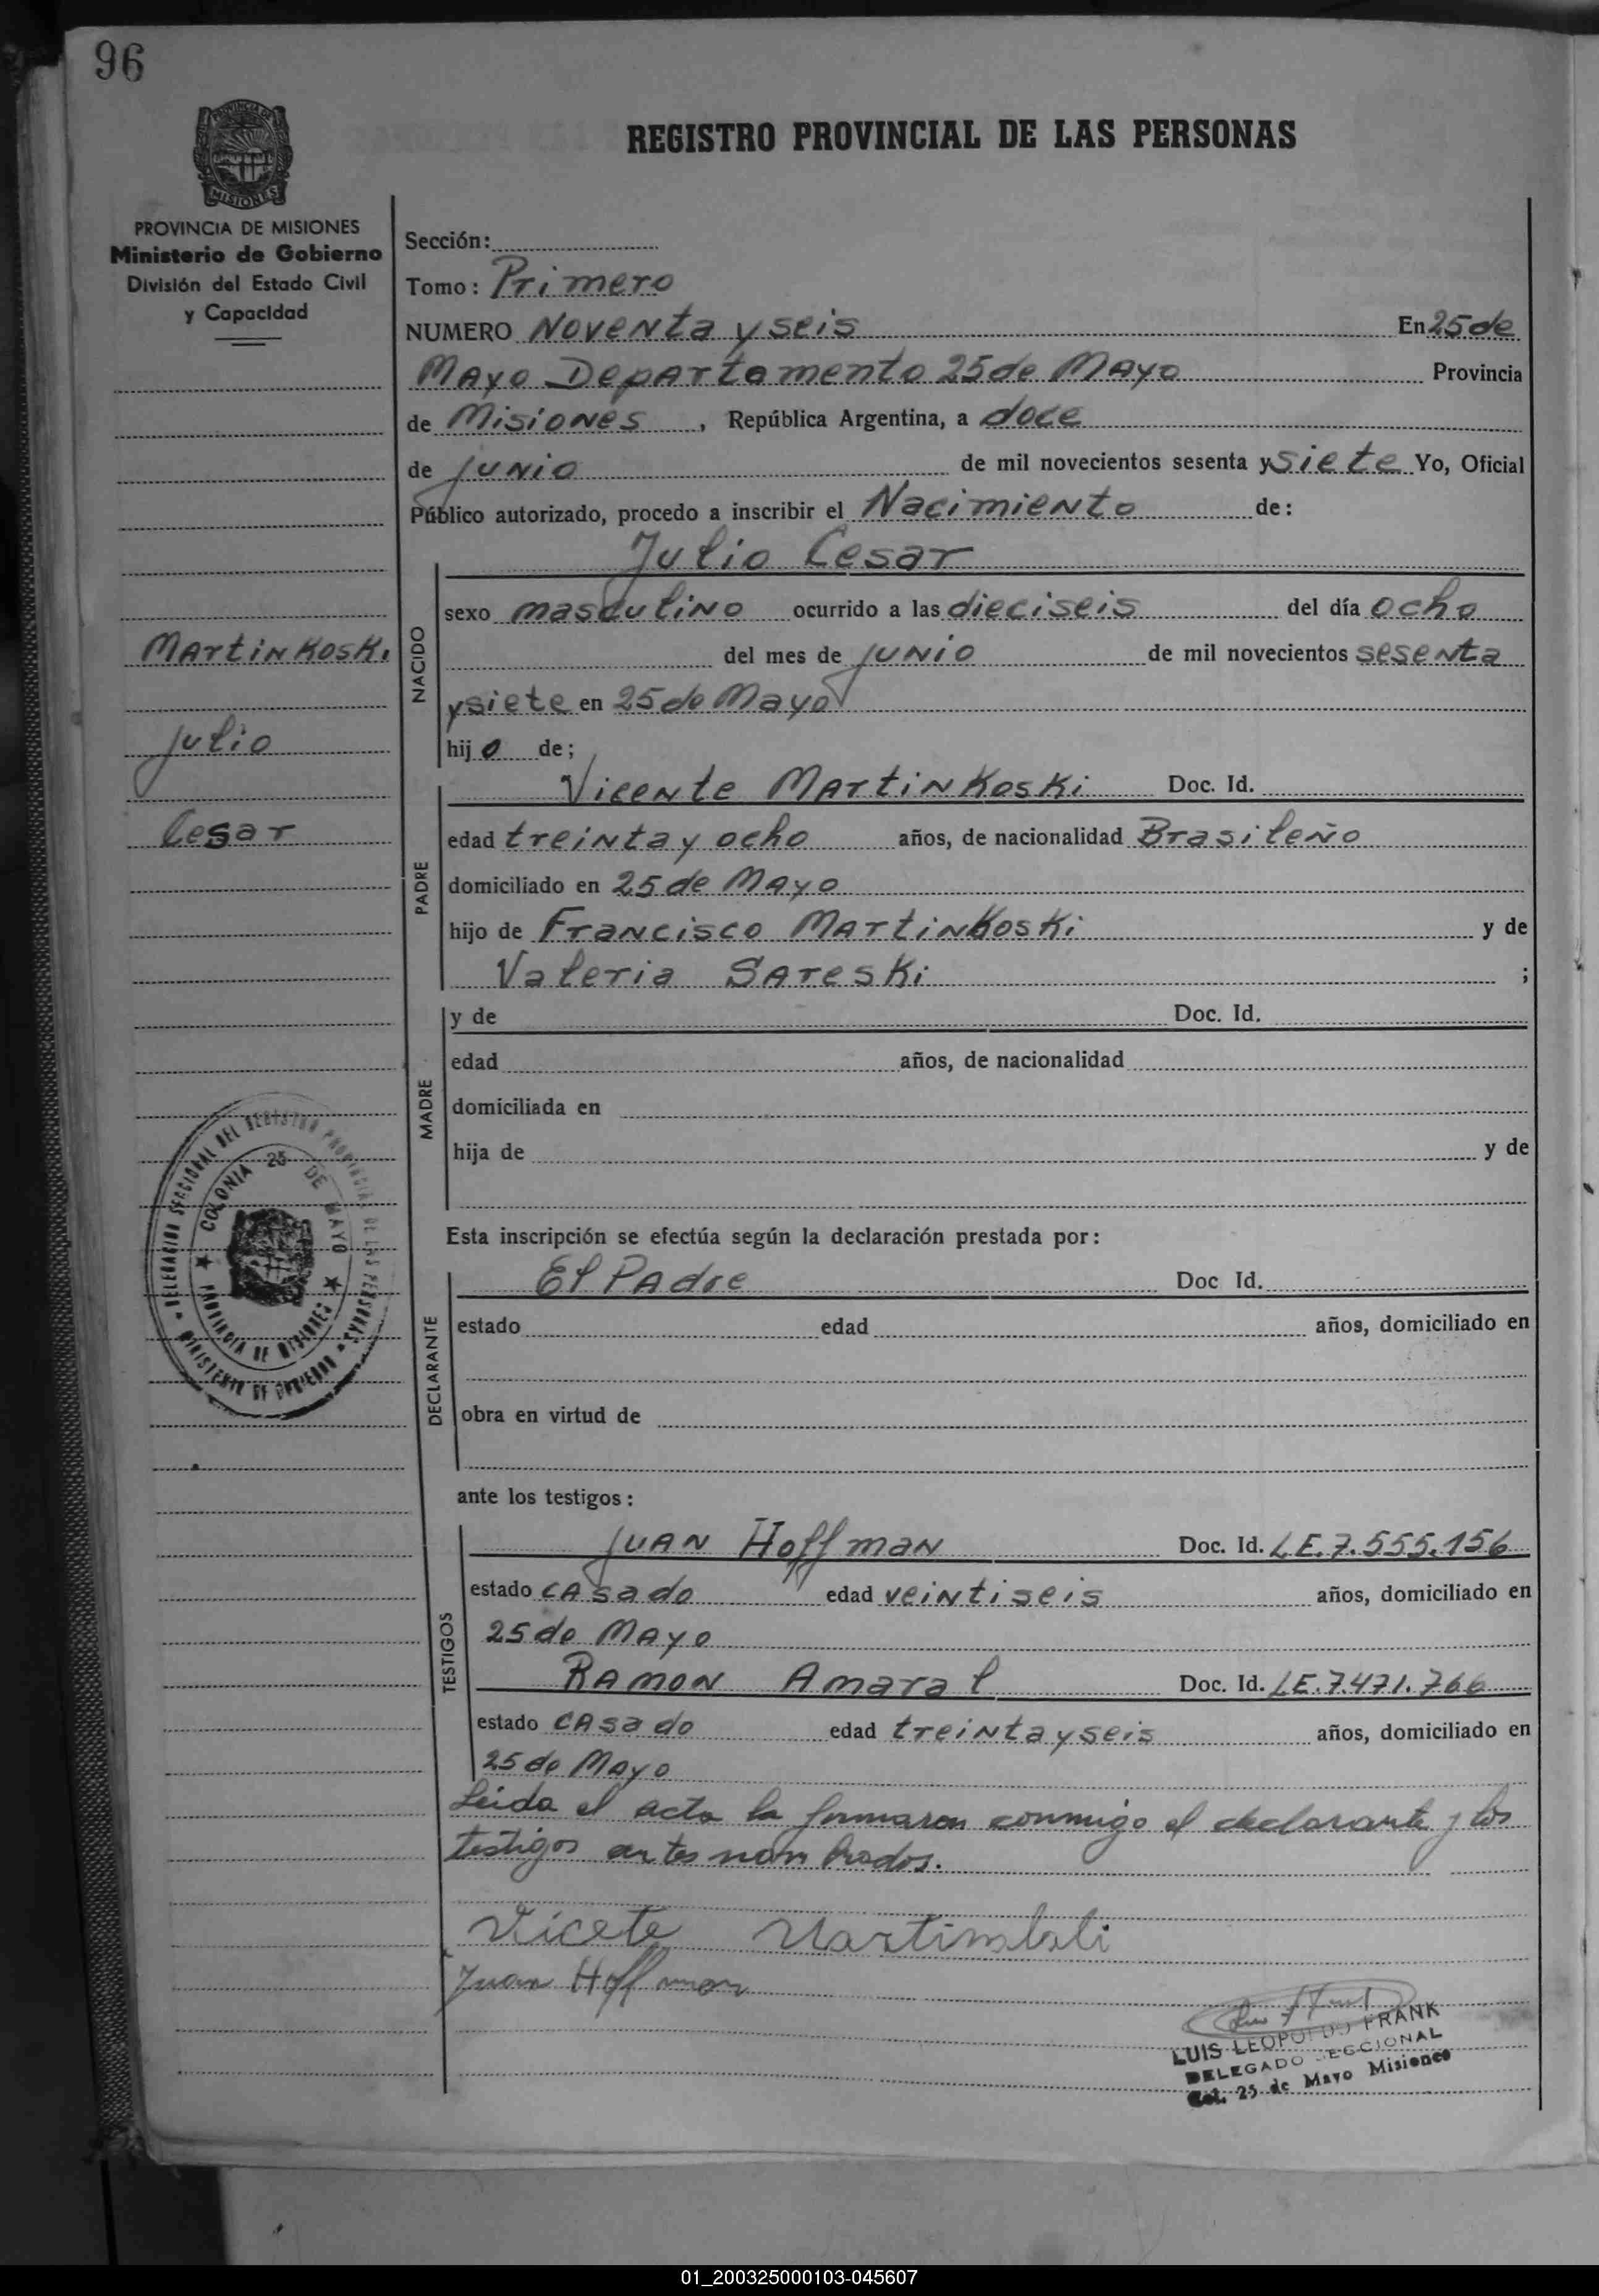 96
REGISTRO PROVINCIAL DE LAS PERSONAS
MISIONES
PROVINCIA DE MISIONES
Ministerio de Gobierno
División del Estado Civil
y Capacidad
Martinkoski
Julio
Cesar
DELEGACION SECCIONAL DEL REGISTRO PROVINCIAL DE LAS PERSONAS
MINISTERIO DE GOBIERNO
COLONIA 25 DE MAYO
PROVINCIA DE MISIONES
Sección:
Tomo: Primero
NUMERO Noventa y seis En 25 de
Mayo Departamento 25 de Mayo Provincia
de Misiones, República Argentina, a doce
de junio de mil novecientos sesenta y siete Yo, Oficial
Público autorizado, procedo a inscribir el Nacimiento de:
Julio Cesar
NACIDO
sexo masculino ocurrido a las dieciseis del día ocho
del mes de junio de mil novecientos sesenta
y siete en 25 de Mayo
hijo de;
PADRE
Vicente Martinkoski Doc. Id.
edad treinta y ocho años, de nacionalidad Brasileño
domiciliado en 25 de Mayo
hijo de Francisco Martinkoski y de
Valeria Sareski ;
MADRE
y de Doc. Id.
edad años, de nacionalidad
domiciliada en
hija de y de
Esta inscripción se efectúa según la declaración prestada por:
DECLARANTE
El Padre Doc Id.
estado edad años, domiciliado en
obra en virtud de
ante los testigos:
TESTIGOS
Juan Hoffman Doc. Id. LE.7.555.156
estado casado edad veintiseis años, domiciliado en
25 de Mayo
Ramon Amaral Doc. Id. LE.7.471.766
estado casado edad treinta y seis años, domiciliado en
25 de Mayo
Leida el acta la firmaron conmigo el declarante y los
testigos antes nombrados.
Vicete
Juan Hoffman
LUIS LEOPOLDO FRANK
DELEGADO SECCIONAL
Col. 25 de Mayo Misiones
01_200325000103-045607